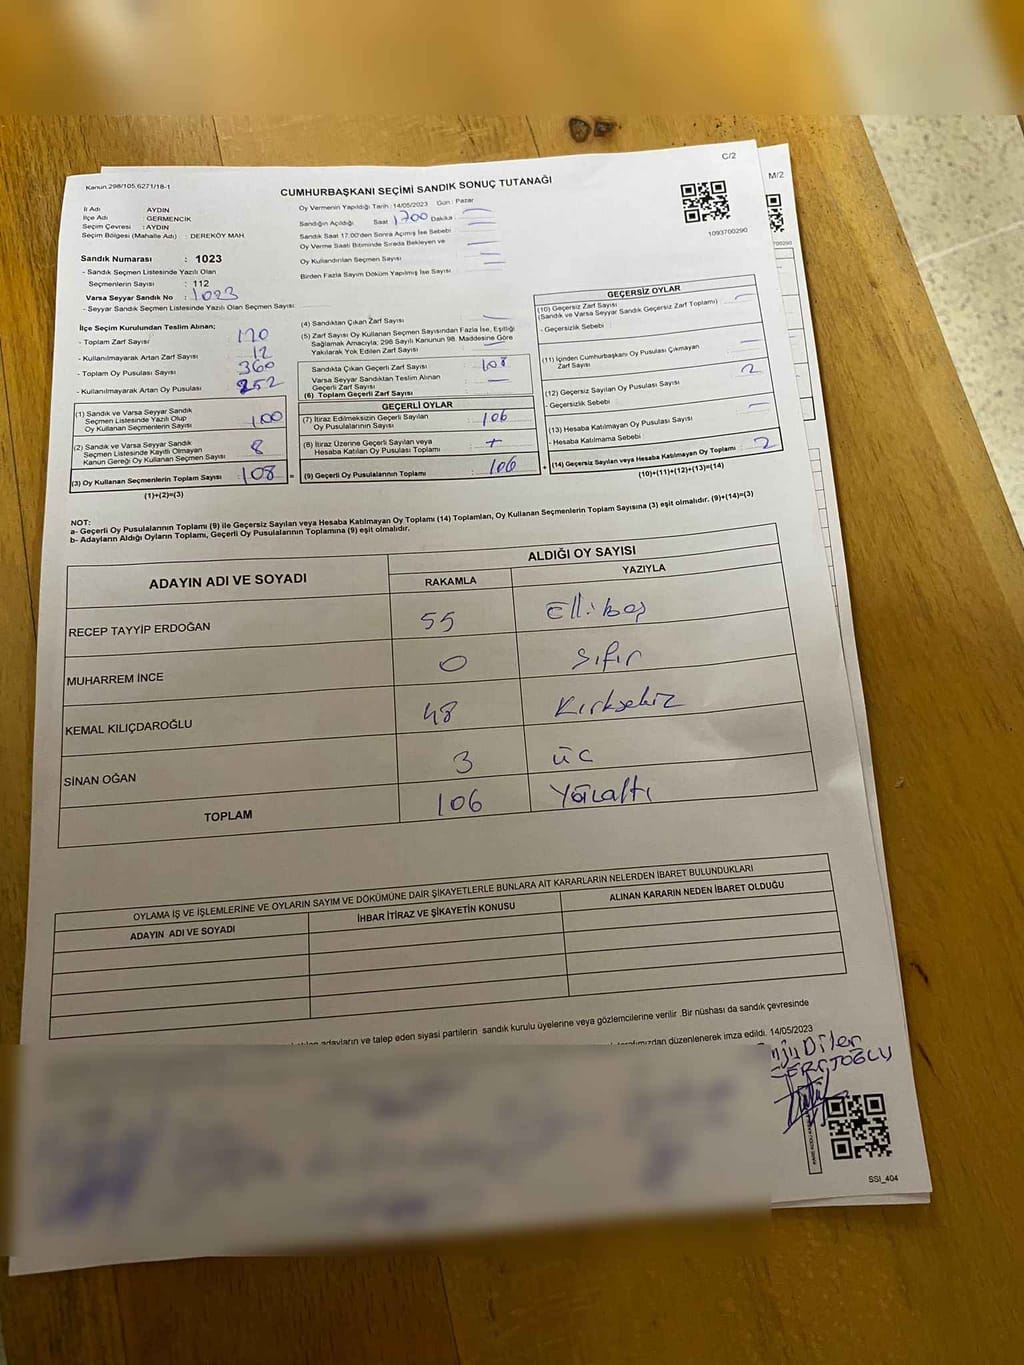 C/2
M/2
Kanun.298/105,6271/18-1
CUMHURBAŞKANI SEÇİMİ SANDIK SONUÇ TUTANAĞI
İl Adı AYDIN
İlçe Adı : GERMENCİK
Seçim Çevresi : AYDIN
Seçim Bölgesi (Mahalle Adı) : DEREKÖY MAH.
Oy Vermenin Yapıldığı Tarih : 14/05/2023 Gün : Pazar
Sandığın Açıldığı Saat 1700 Dakika
Sandık Saat 17:00'den Sonra Açılmış İse Sebebi
Oy Verme Saati Bitiminde Sırada Bekleyen ve
Oy Kullandırılan Seçmen Sayısı
Birden Fazla Sayım Döküm Yapılmış İse Sayısı
1093700290
Sandık Numarası : 1023
- Sandık Seçmen Listesinde Yazılı Olan
Seçmenlerin Sayısı : 112
Varsa Seyyar Sandık No : 1023
- Seyyar Sandık Seçmen Listesinde Yazılı Olan Seçmen Sayısı
İlçe Seçim Kurulundan Teslim Alınan;
- Toplam Zarf Sayısı 120
- Kullanılmayarak Artan Zarf Sayısı 12
- Toplam Oy Pusulası Sayısı 360
- Kullanılmayarak Artan Oy Pusulası 252
(1) Sandık ve Varsa Seyyar Sandık
Seçmen Listesinde Yazılı Olup
Oy Kullanan Seçmenlerin Sayısı 100
(2) Sandık ve Varsa Seyyar Sandık
Seçmen Listesinde Kayıtlı Olmayan
Kanun Gereği Oy Kullanan Seçmen Sayısı 8
(3) Oy Kullanan Seçmenlerin Toplam Sayısı : 108 =
(1)+(2)=(3)
(4) Sandıktan Çıkan Zarf Sayısı
(5) Zarf Sayısı Oy Kullanan Seçmen Sayısından Fazla İse, Eşitliği
Sağlamak Amacıyla, 298 Sayılı Kanunun 98. Maddesine Göre
Yakılarak Yok Edilen Zarf Sayısı
Sandıkta Çıkan Geçerli Zarf Sayısı 108
Varsa Seyyar Sandıktan Teslim Alınan
Geçerli Zarf Sayısı
(6) Toplam Geçerli Zarf Sayısı
GEÇERLİ OYLAR
(7) İtiraz Edilmeksizin Geçerli Sayılan
Oy Pusulalarının Sayısı 106
(8) İtiraz Üzerine Geçerli Sayılan veya
Hesaba Katılan Oy Pusulası Toplamı +
(9) Geçerli Oy Pusulalarının Toplamı : 106 +
GEÇERSİZ OYLAR
(10) Geçersiz Zarf Sayısı
(Sandık ve Varsa Seyyar Sandık Geçersiz Zarf Toplamı)
- Geçersizlik Sebebi
(11) İçinden Cumhurbaşkanı Oy Pusulası Çıkmayan
Zarf Sayısı
(12) Geçersiz Sayılan Oy Pusulası Sayısı 2
- Geçersizlik Sebebi :
(13) Hesaba Katılmayan Oy Sayısı
- Hesaba Katılmama Sebebi
(14) Geçersiz Sayılan veya Hesaba Katılmayan Oy Toplamı 2
(10)+(11)+(12)+(13)=(14)
NOT:
a- Geçerli Oy Pusulalarının Toplamı (9) ile Geçersiz Sayılan veya Hesaba Katılmayan Oy Toplamı (14) Toplamları, Oy Kullanan Seçmenlerin Toplam Sayısına (3) eşit olmalıdır. (9)+(14)=(3)
b- Adayların Aldığı Oyların Toplamı, Geçerli Oy Pusulalarının Toplamına (9) eşit olmalıdır.
ADAYIN ADI VE SOYADI
ALDIĞI OY SAYISI
RAKAMLA YAZIYLA
RECEP TAYYİP ERDOĞAN 55 Ellibeş
MUHARREM İNCE 0 Sıfır
KEMAL KILIÇDAROĞLU 48 Kırksekiz
SİNAN OĞAN 3 üç
TOPLAM 106 Yüzaltı
OYLAMA İŞ VE İŞLEMLERİNE VE OYLARIN SAYIM VE DÖKÜMÜNE DAİR ŞİKAYETLERLE BUNLARA AİT KARARLARIN NELERDEN İBARET BULUNDUKLARI
ADAYIN ADI VE SOYADI İHBAR İTİRAZ VE ŞİKAYETİN KONUSU ALINAN KARARIN NEDEN İBARET OLDUĞU
adayların ve talep eden siyasi partilerin sandık kurulu üyelerine veya gözlemcilerine verilir .Bir nüshası da sandık çevresinde
düzenlenerek imza edildi. 14/05/2023
Diler
SSI_404